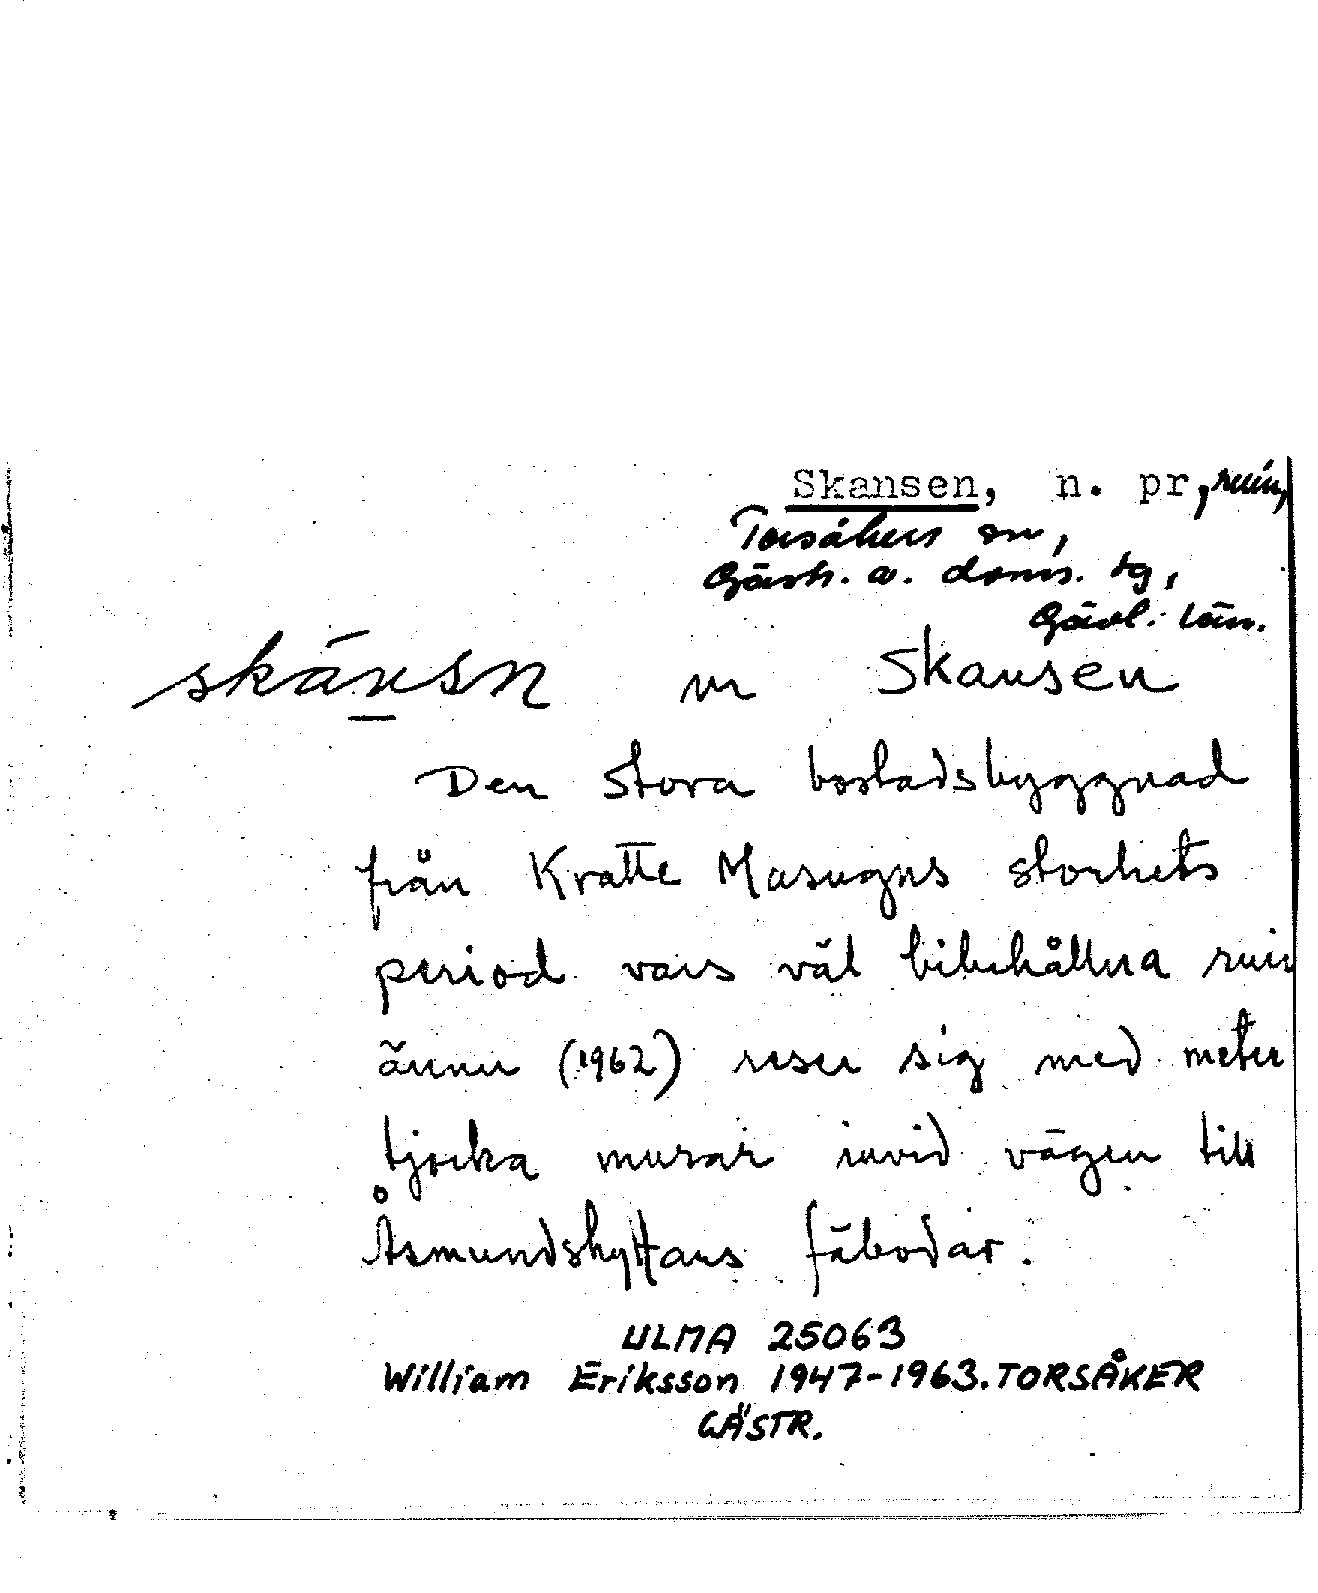 Skansen, n. pr, ruin,
Torsåkers sn,
Gästr. ö. doms. tg,
Gävl. län.
skánsn m Skansen
Den stora bostadsbyggnad
från Kratte Masugns storhets
period vars väl bibehållna ruin
ännu (1962) reser sig med meter
tjocka murar invid vägen till
Åsmundshyttans fäbodar.
ULMA 25063
William Eriksson 1947-1963. TORSÅKER
GÄSTR.